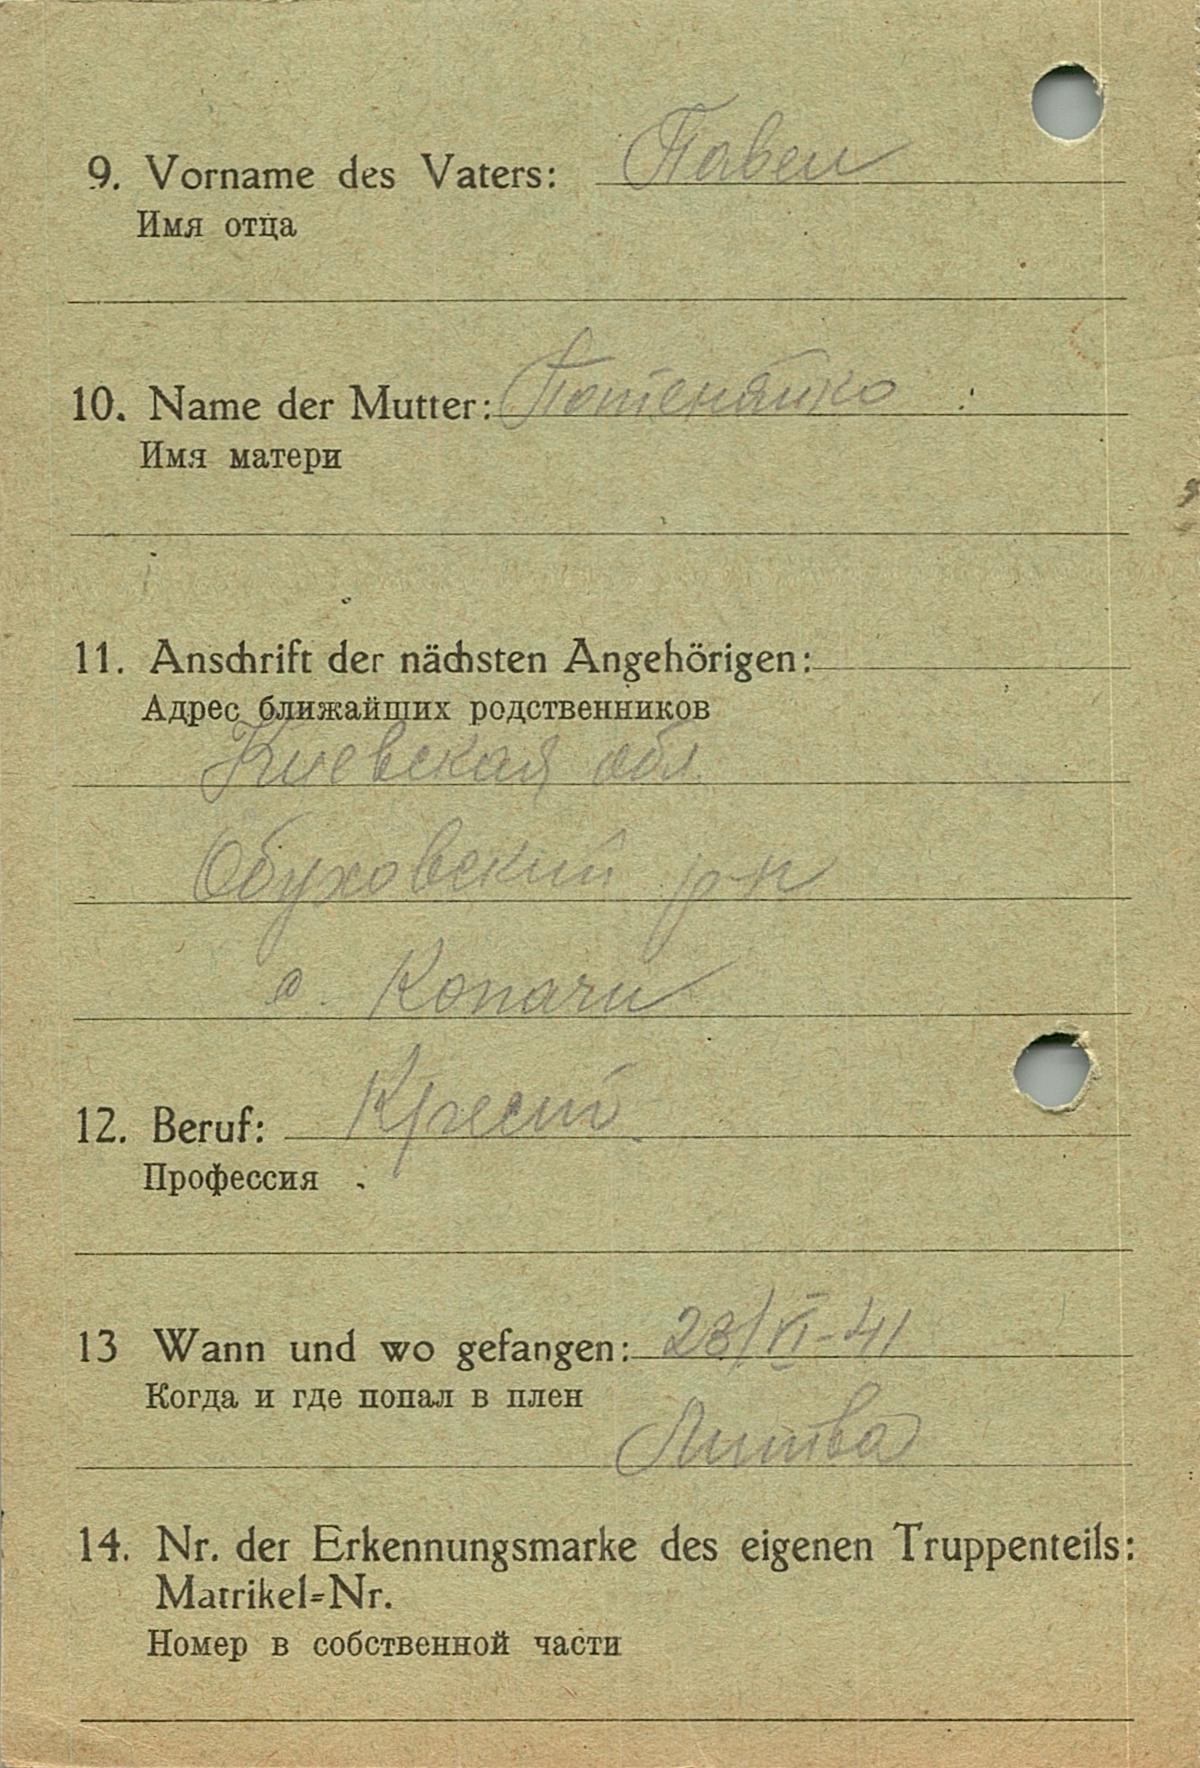 9. Vorname des Vaters: Павел
Имя отца
10. Name der Mutter:
Имя матери
11. Anschrift der nächsten Angehörigen:
Адрес ближайших родственников
Киевская обл.
Обуховский р-н
с. Копачи
12. Beruf: Крест.
Профессия
13 Wann und wo gefangen: 23/VI-41
Когда и где попал в плен
Литва
14. Nr. der Erkennungsmarke des eigenen Truppenteils:
Matrikel=Nr.
Номер в собственной части